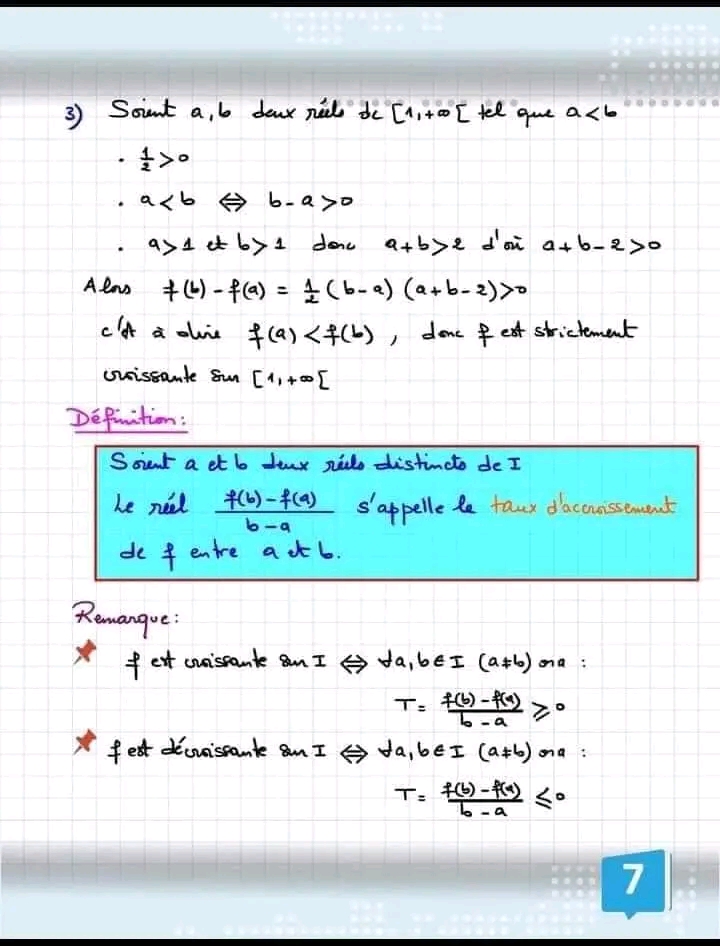 3) Soient a, b deux réels de [1, +∞[ tel que a < b
. 1/2 > 0
. a < b ⇔ b - a > 0
. a > 1 et b > 1 donc a + b > 2 d'où a + b - 2 > 0
Alors f(b) - f(a) = 1/2 (b - a) (a + b - 2) > 0
c'At à dire f(a) < f(b), donc f est strictement
croissante sur [1, +∞[
Définition:
Soient a et b deux réels distincts de I
Le réel (f(b) - f(a))/(b - a) s'appelle le taux d'accroissement
de f entre a et b.
Remarque:
f est croissante sur I ⇔ ∀a, b ∈ I (a ≠ b) on a :
T = (f(b) - f(a))/(b - a) ⩾ 0
f est décroissante sur I ⇔ ∀a, b ∈ I (a ≠ b) on a :
T = (f(b) - f(a))/(b - a) ⩽ 0
7